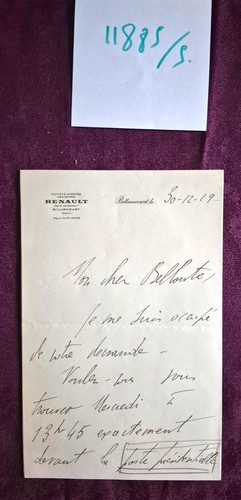 11885/5.
RENAULT
BILLANCOURT
Billancourt, le 30-12-19
Mon cher Bellonte,
Je me suis occupé
de votre demande -
Voulez-vous vous
trouver Mercredi à
13h 45 exactement
devant la porte présidentielle